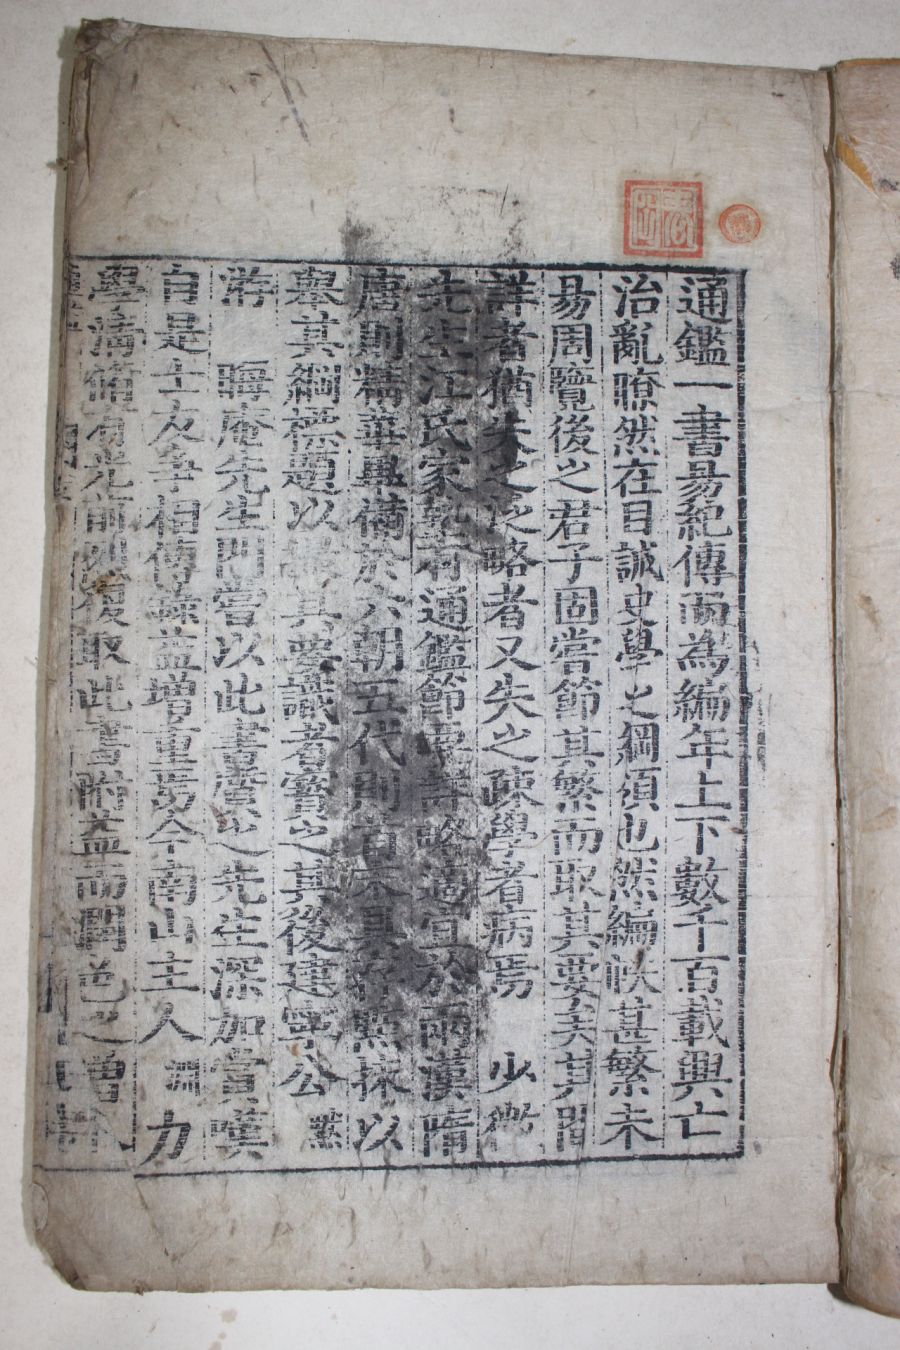 通鑑一書易紀傳而為編年上下數千百載興亡
治亂瞭然在目誠史學之綱領也然編帙甚繁未
易周覽後之君子固嘗節其繁而取其要矣其間
詳者猶失之略者又失之疎學者病焉 少微
先生江氏家塾有通鑑節要詳略適宜於兩漢隋
唐則精華畢備於六朝五代則首末具存點抹以
舉其綱標題以其要識者寶之其後建寧公 默
游 晦庵先生門嘗以此書質之先生深加賞嘆
自是士友爭相傳錄益增重焉今南山主人 淵力
學清脩有光前烈復取此書附益而潤色之增入